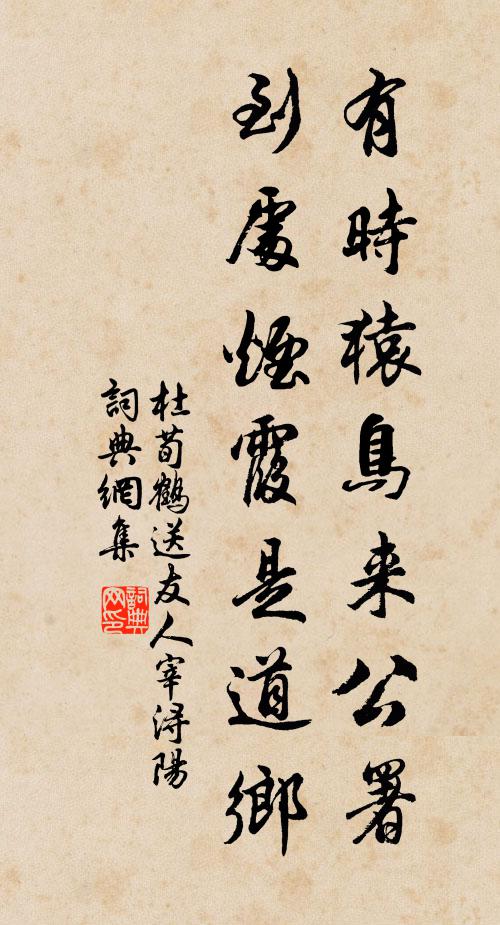 有時猿鳥来公署
到處煙霞是道鄉
杜荀鶴送友人宰浔陽
詞典網集
詞典
网印